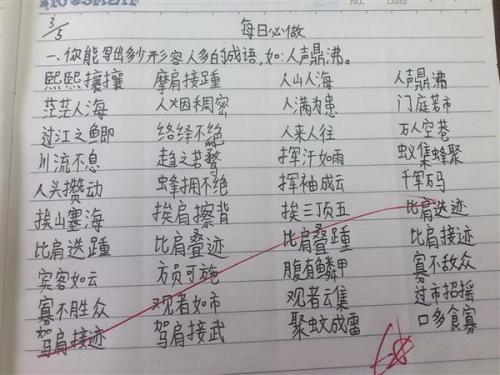 No. Date
3/5
每日必做
一、你能写出多少形容人多的成语,如:人声鼎沸。
熙熙攘攘 摩肩接踵 人山人海 人声鼎沸
茫茫人海 人烟稠密 人满为患 门庭若市
过江之鲫 络绎不绝 人来人往 万人空巷
川流不息 趋之若鹜 挥汗如雨 蚁集蜂聚
人头攒动 蜂拥不绝 挥袖成云 千军万马
挨山塞海 挨肩擦背 挨三顶五 比肩迭迹
比肩迭踵 比肩叠迹 比肩叠踵 比肩接迹
宾客如云 方员可施 腹有鳞甲 寡不敌众
寡不胜众 观者如市 观者云集 过市招摇
驾肩接迹 驾肩接武 聚蚊成雷 口多食寡